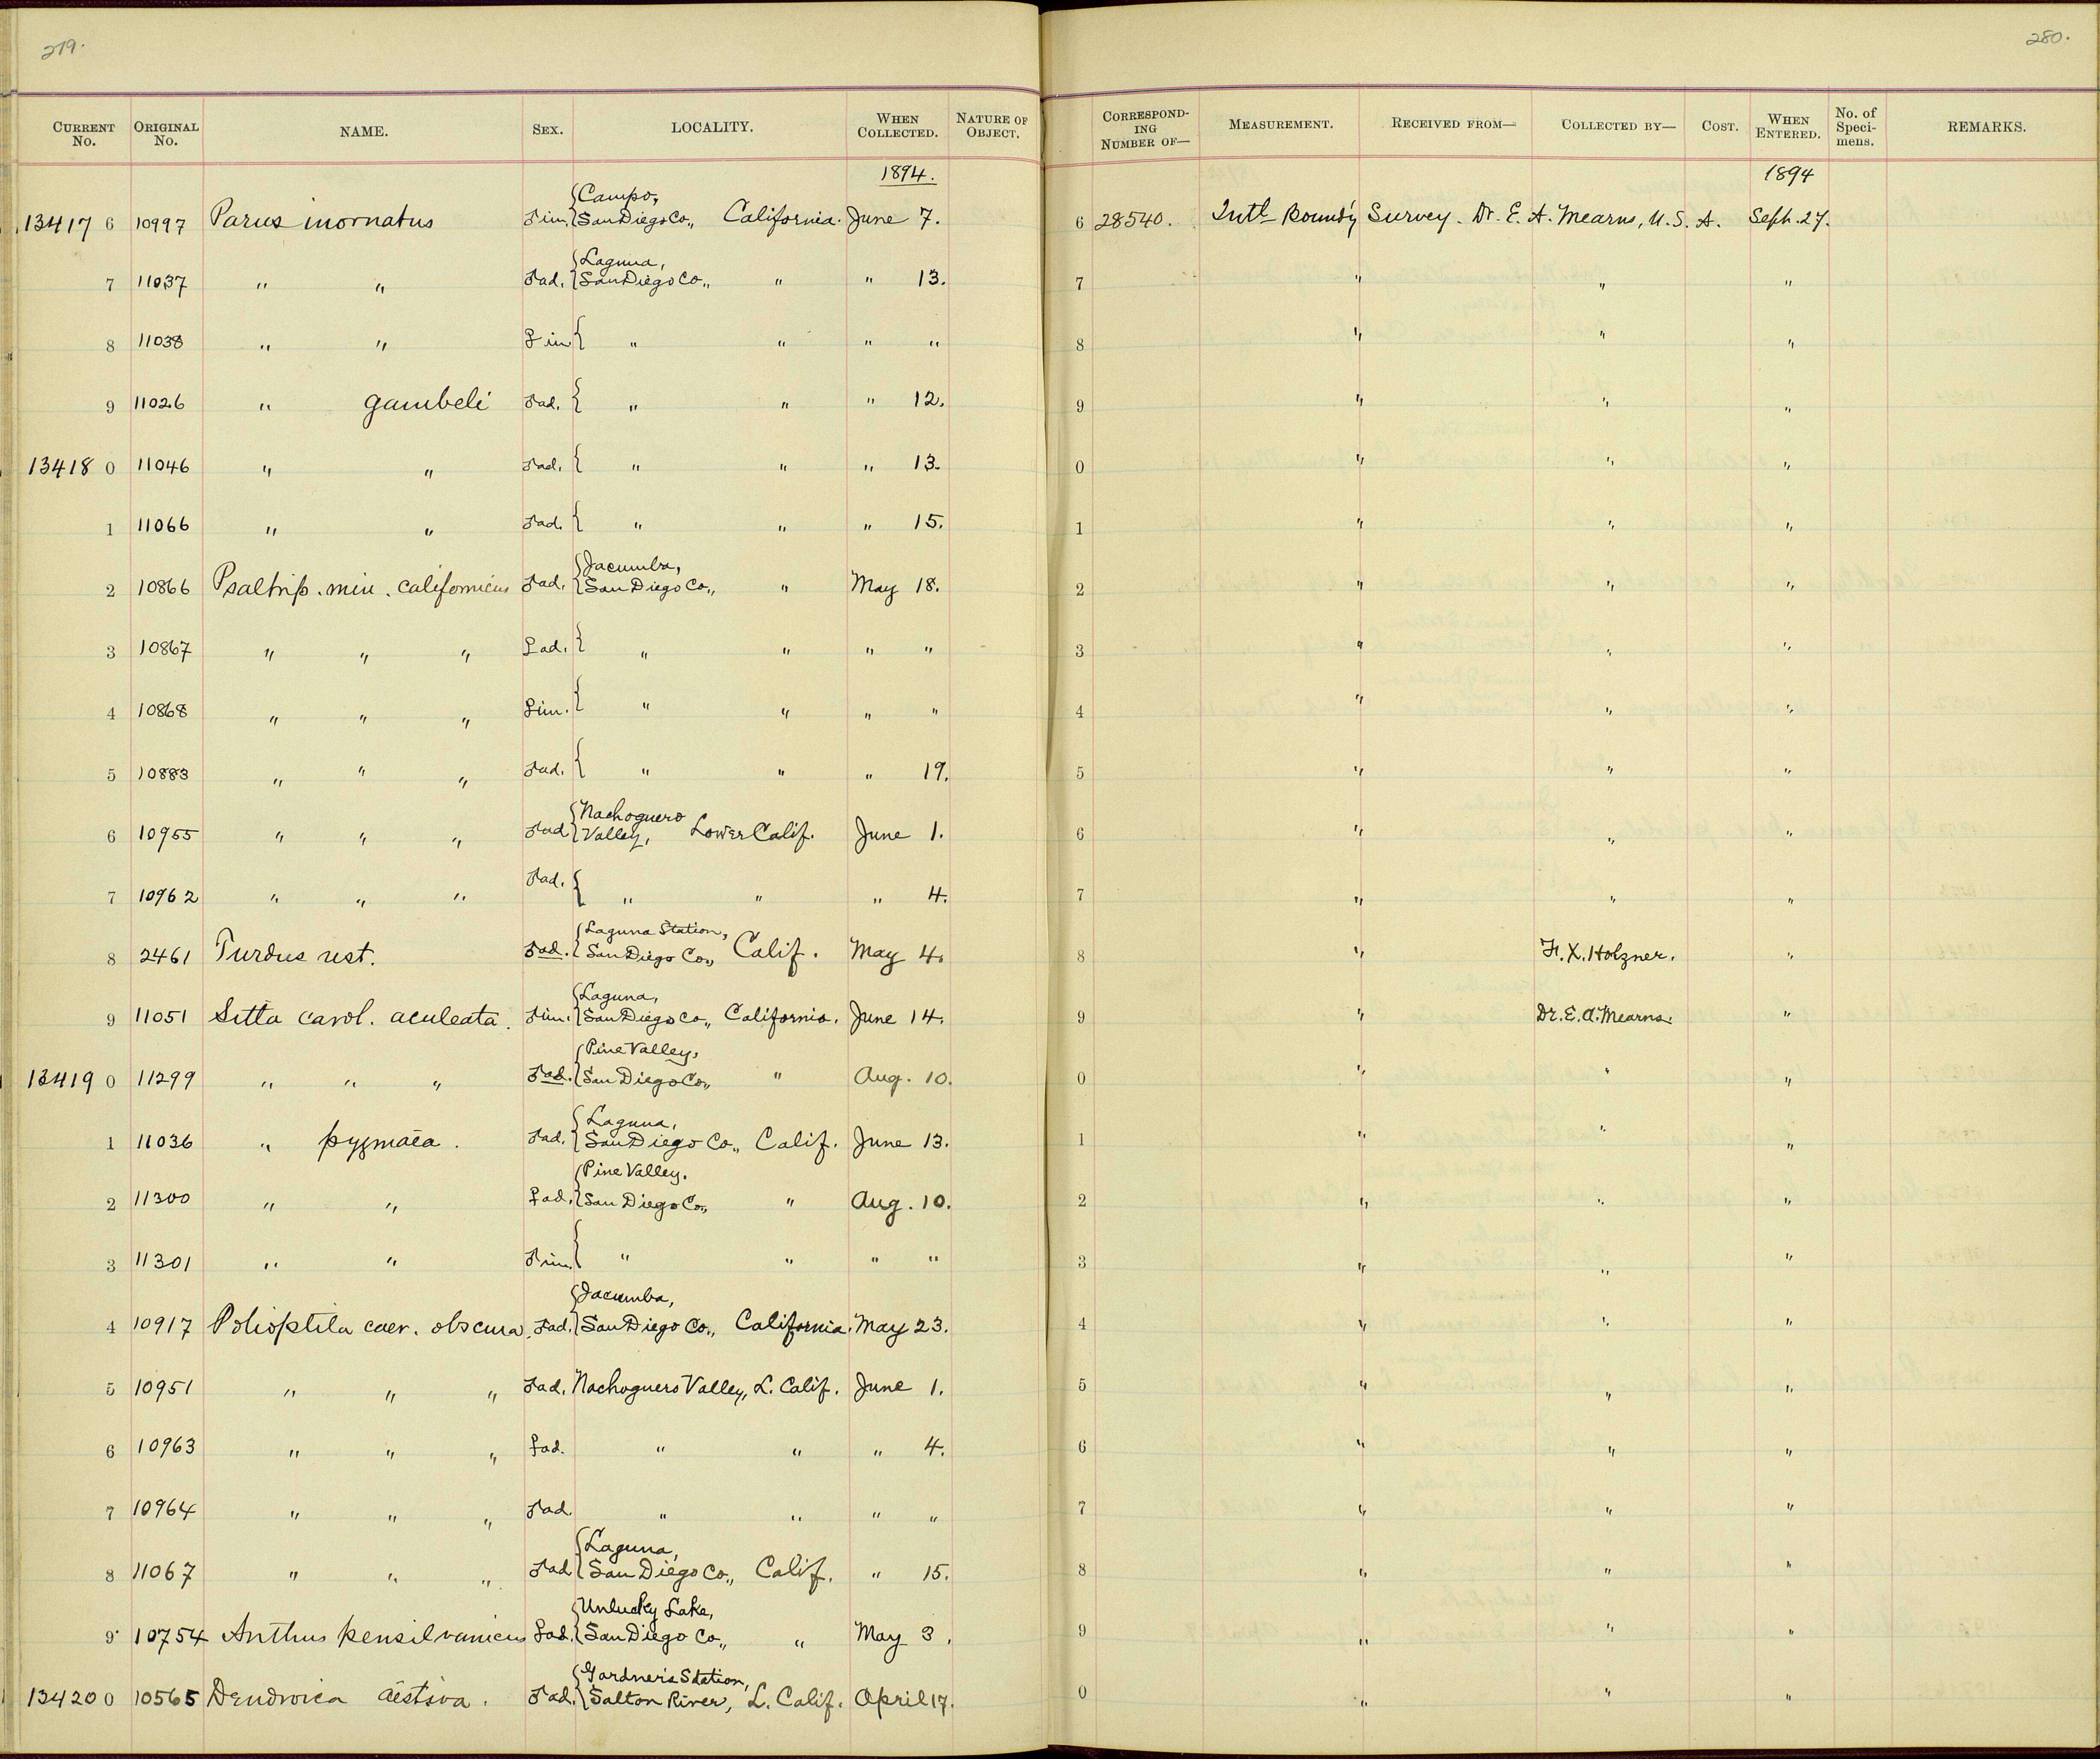 279.
280.
CURRENT No. ORIGINAL No. NAME. SEX. LOCALITY. WHEN COLLECTED. NATURE OF OBJECT. CORRESPONDING NUMBER OF— MEASUREMENT. RECEIVED FROM— COLLECTED BY— COST. WHEN ENTERED. No. of Specimens. REMARKS.
1894. 1894
13417 6 10997 Parus inornatus ♂im. {Campo, San Diego Co., California. June 7. 6 28540. Intl Bound'y Survey. Dr. E. A. Mearns, U.S.A. Sept. 27.
7 11037 " " ♂ad. {Laguna, San Diego Co., " " 13. 7 " " "
8 11038 " " ♀im { " " " " 8 " " "
9 11026 " gambeli ♂ad. { " " " 12. 9 " " "
13418 0 11046 " " ♂ad. { " " " 13. 0 " " "
1 11066 " " ♂ad. { " " " 15. 1 " " "
2 10866 Psaltrip. min. californicus ♂ad. {Jacumba, San Diego Co., " May 18. 2 " " "
3 10867 " " " ♀ad. { " " " " 3 " " "
4 10868 " " " ♀im. { " " " " 4 " " "
5 10883 " " " ♂ad. { " " " 19. 5 " " "
6 10955 " " " ♂ad {Nachoguero Valley, Lower Calif. June 1. 6 " " "
7 10962 " " " ♂ad. { " " " 4. 7 " " "
8 2461 Turdus ust. ♂ad. {Laguna Station, San Diego Co., Calif. May 4. 8 " F. X. Holzner. "
9 11051 Sitta carol. aculeata. ♂im. {Laguna, San Diego Co., California. June 14. 9 " Dr. E. A. Mearns. "
13419 0 11299 " " " ♂ad. {Pine Valley, San Diego Co., " Aug. 10. 0 " " "
1 11036 " pygmæa. ♂ad. {Laguna, San Diego Co., Calif. June 13. 1 " " "
2 11300 " " ♀ad. {Pine Valley. San Diego Co., " Aug. 10. 2 " " "
3 11301 " " ♂im. { " " " " 3 " " "
4 10917 Polioptila caer. obscura. ♂ad. {Jacumba, San Diego Co., California. May 23. 4 " " "
5 10951 " " " ♂ad. Nachoguero Valley, L. Calif. June 1. 5 " " "
6 10963 " " " ♀ad. " " " 4. 6 " " "
7 10964 " " " ♂ad. " " " " 7 " " "
8 11067 " " " ♂ad {Laguna, San Diego Co., Calif. " 15. 8 " " "
9 10754 Anthus pensilvanicus ♀ad. {Unlucky Lake, San Diego Co., " May 3. 9 " " "
13420 0 10565 Dendroica æstiva. ♂ad. {Gardner's Station, Salton River, L. Calif. April 17. 0 " " "